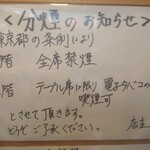 ＜分煙のお知らせ＞
東京都の条例により
階 全席禁煙
階 テーブル席に限り 電子タバコのみ
喫煙可
とさせて頂きます。
どうぞご了承ください。
店主